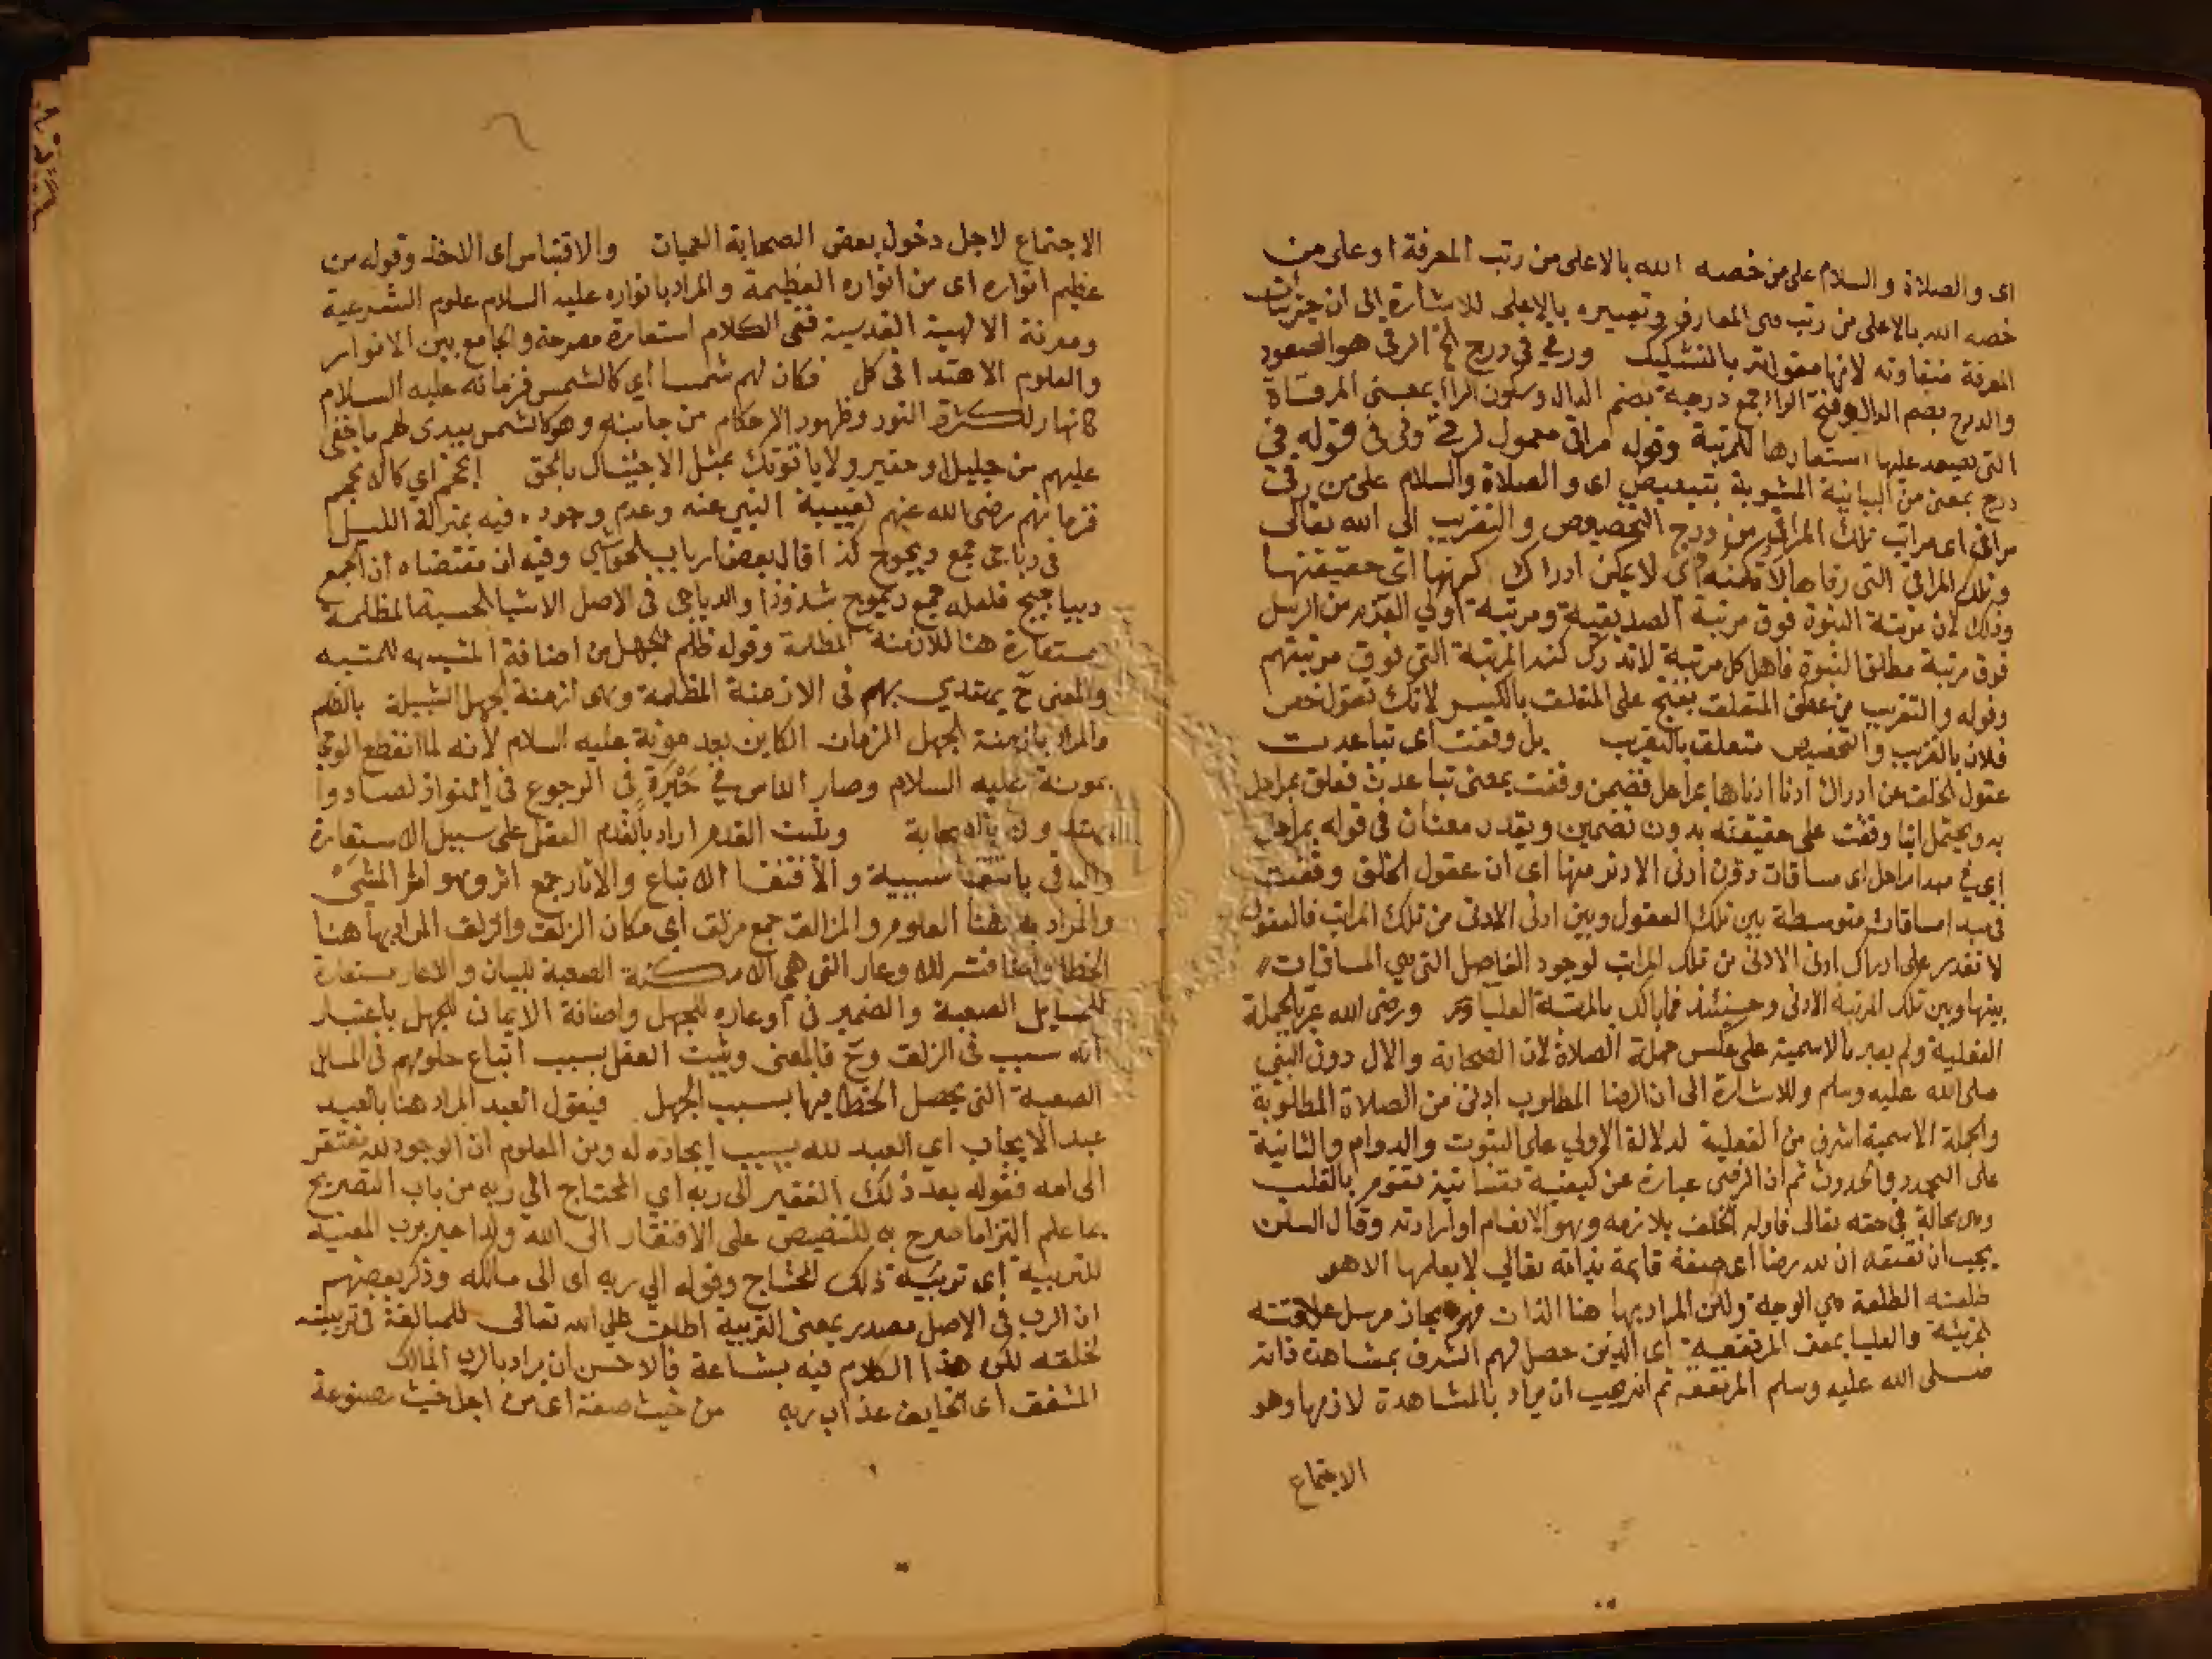 اى والصلاة والسلام على من خصه الله بالاعلى من رتب المعرفة او على من
خصه الله بالاعلى من رتب هى المعارف وتعبيره بالاعلى للاشارة الى ان جزئيات
المعرفة متفاوته لانها مقولة بالتشكيك ورقي في درج الخ الرقى هو الصعود
والدرج بضم الدال وفتح الراء جمع درجة بضم الدال وسكون الراء بمعنى المرقاة
التى يصعد عليها استعارها للمرتبة وقوله مراقى معمول لرقى وفى في قوله في
درج بمعنى من البيانية المشوبة بتبعيض اى والصلاة والسلام على من رقى
مراقى اى مراتب تلك المراقى من درج التخصيص والتقريب الى الله تعالى
وتلك المراقى التى رقاها لا تكتنه اى لا يمكن ادراك كنهها اى حقيقتها
وذلك لان مرتبة النبوة فوق مرتبة الصديقية ومرتبة اولي العزم من الرسل
فوق مرتبة مطلق النبوة فاهل كل مرتبة لا تدرك كنه المرتبة التى فوق مرتبتهم
وقوله والتقريب من عطف المتعلق بفتح على المتعلق بالكسر لانك تقول خص
فلان بالقرب والتخصيص متعلق بالتقريب بل وقفت اى تباعدت
عقول الخلق عن ادراك ادنا ادناها بمراحل فضمن وقفت بمعنى تباعدت فعلق بمراحل
به ويحتمل انها وقفت على حقيقته بدون تضمين ويقدر معنا ان فى قوله بمراحل
اى في مبدا مراحل اى مسافات دون ادنى الادنى منها اى ان عقول الخلق وقفت
فى مبدا مسافات متوسطة بين تلك العقول وبين ادنى الادنى من تلك المراتب فالعقول
لا تقدر على ادراك ادنى الادنى من تلك المراتب لوجود الفاصل التى هى المسافات
بينها وبين تلك المرتبة الادنى وحينئذ فما بالك بالمرتبة العليا ورضى الله عبر بالجملة
الفعلية ولم يعبر بالاسمية على عكس جملة الصلاة لان الصحابة والال دون النبى
صلى الله عليه وسلم وللاشارة الى ان الرضا المطلوب ادنى من الصلاة المطلوبة
والجملة الاسمية اشرف من الفعلية لدلالة الاولي على الثبوت والدوام والثانية
على التجدد والحدوث ثم ان الرضى عبارة عن كيفية نفسانية تقوم بالقلب
وهى محالة فى حقه تعالى فاوله الخلف بلازمه وهو الانعام او ارادته وقال السلف
يجب ان نعتقد ان لله رضا اى صفة قايمة بذاته تعالي لا يعلمها الا هو
طلعته الطلعة هي الوجه ولكن المراد بها هنا الذات فهو مجاز مرسل علاقته
الجزئية والعليا بمعنى المرتفعة اى الذين حصل لهم الشرف بمشاهدة ذاته
صلى الله عليه وسلم المرتفعة ثم انه يجب ان يراد بالمشاهدة لازمها وهو
الاجتماع
الاجتماع لاجل دخول بعض الصحابة العميان والاقتباس اى الاخذ وقوله من
عظيم انواره اى من انواره العظيمة والمراد بانواره عليه السلام علوم الشرعية
ومعرفة الالهية القدسية ففى الكلام استعارة مصرحة والجامع بين الانوار
والعلوم الاهتدا فى كل فكان لهم شمسا اي كالشمس فزمانه عليه السلام
كانهار لكثرة النور وظهور الاحكام من جانبه وهو كالشمس يبدى لهم ما خفى
عليهم من جليل او حقير ولا ياتونك بمثل الا جئناك بالحق انجم اي كالانجم
فزمانهم رضى الله عنهم لغيبة النبى عنه وعدم وجوده فيه بمنزلة الليل
فى دياجى جمع ديجوج كذا قال بعض ارباب الحواشي وفيه ان مقتضاه ان الجمع
دياجيج فلعله جمع ديجوج شذوذا والدياجى فى الاصل الاشيا الحسية المظلمة
مستعارة هنا للازمنة المظلمة وقوله ظلم الجهل من اضافة المشبه به للمشبه
والمعنى ح يهتدي بهم فى الازمنة المظلمة وهى ازمنة الجهل الشبيه بالظلم
والمراد بازمنة الجهل الزمان الكاين بعد موته عليه السلام لانه لما انقطع الوحى
بموته عليه السلام وصار الناس في حَيْرَةٍ فى الرجوع فى النوازل صاروا
يهتدون بالصحابة ويثبت القدم اراد بالقدم العقل على سبيل الاستعارة
والبا فى باقتفا سببية والاقتفا الاتباع والاثار جمع اثر وهو اثر المشى
والمراد به هنا العلوم والمزالق جمع مزلق اى مكان الزلق والزلق المراد بها هنا
الخطا واوعار التى هي الامكنة الصعبة للبيان والاوعار مستعارة
للمسايل الصعبة والضمير فى اوعاره للجهل واضافة للجهل باعتبار
انه سبب فى الزلق وح فالمعنى ويثبت العقل بسبب اتباع علومهم فى المسايل
الصعبة التى يحصل الخطا فيها بسبب الجهل فيقول العبد المراد هنا بالعبد
عبد الايجاب اي العبد لله بسبب ايجاده له ومن المعلوم ان الموجود لله مفتقر
الى الله فقوله بعد ذلك الفقير الى ربه اي المحتاج الي ربه من باب التصريح
بما علم التزاما صرح به للتنصيص على الافتقار الى الله ولذا عبر برب المقتضية
للتربية اى تربية ذلك المحتاج وقوله الي ربه اى الى مالكه وذكر بعضهم
ان الرب فى الاصل مصدر بمعنى التربية اطلق على الله تعالى للمبالغة فى تربيته
لخلقه لكن هذا الكلام فيه بشاعة فالاحسن ان يراد بالرب المالك
المشفق اى الخايف عذاب ربه من خبث صنعه اى من اجل خبث مصنوعه